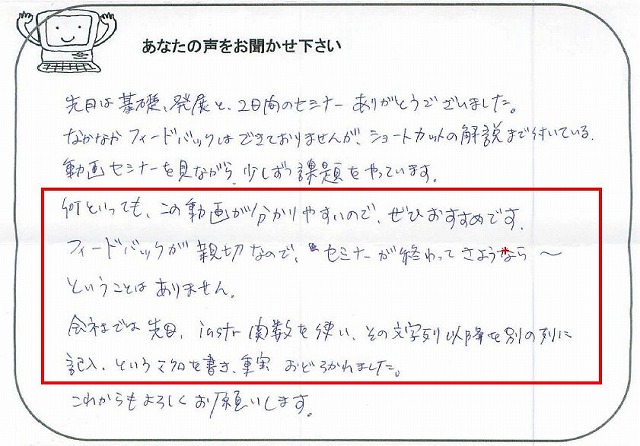 あなたの声をお聞かせ下さい
先日は基礎、発展と、2日間のセミナーありがとうございました。
なかなかフィードバックはできておりませんが、ショートカットの解説まで付いている
動画セミナーを見ながら、少しずつ課題をやっています。
何といっても、この動画が分かりやすいので、ぜひおすすめです。
フィードバックが親切なので、セミナーが終わってさようなら〜
ということはありません。
会社では先日、instr関数を使い、その文字列以降を別の列に
記入、というマクロを書き、重宝 おどろかれました。
これからもよろしくお願いします。